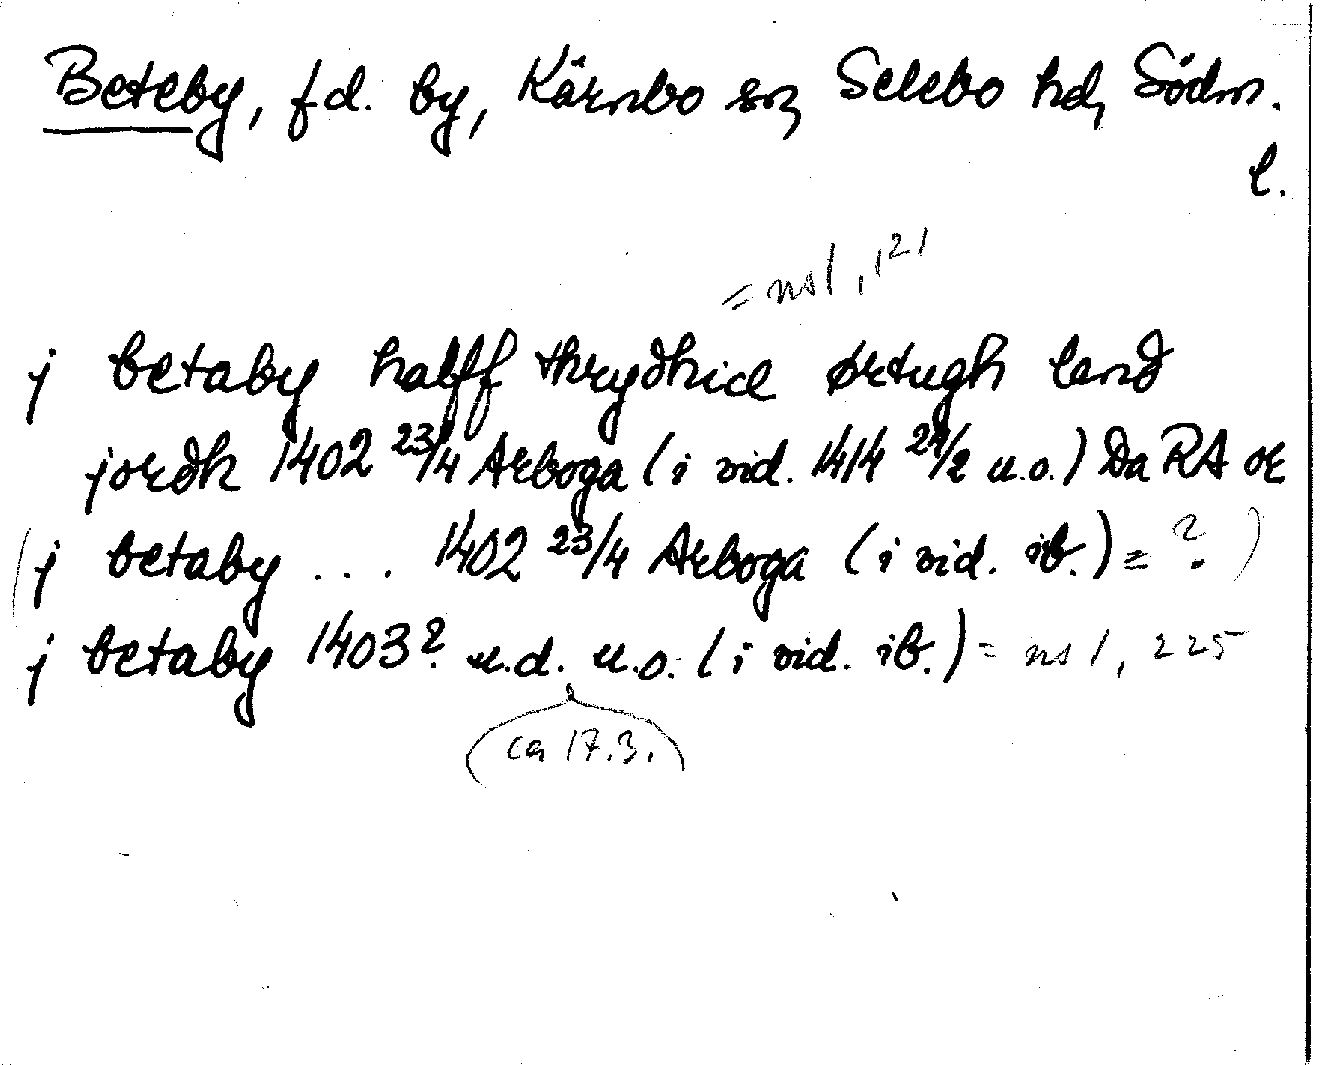 Beteby, f.d. by, Kärnbo sn, Selebo hd, Södm.
l.
= ns 1, 121
j betaby halff thryðhiæ ørtugh lanð
jorðh 1402 23/4 Arboga (i vid. 1414 u.o.) Da RA or
(j betaby ... 1402 23/4 Arboga (i vid. ib.) = ?)
j betaby 1403? u.d. u.o. (i vid. ib.) = ns 1, 225
ca 17.3.